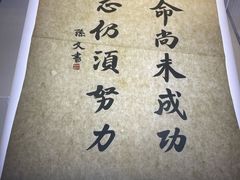 命尚未成功
志仍須努力
孫文書